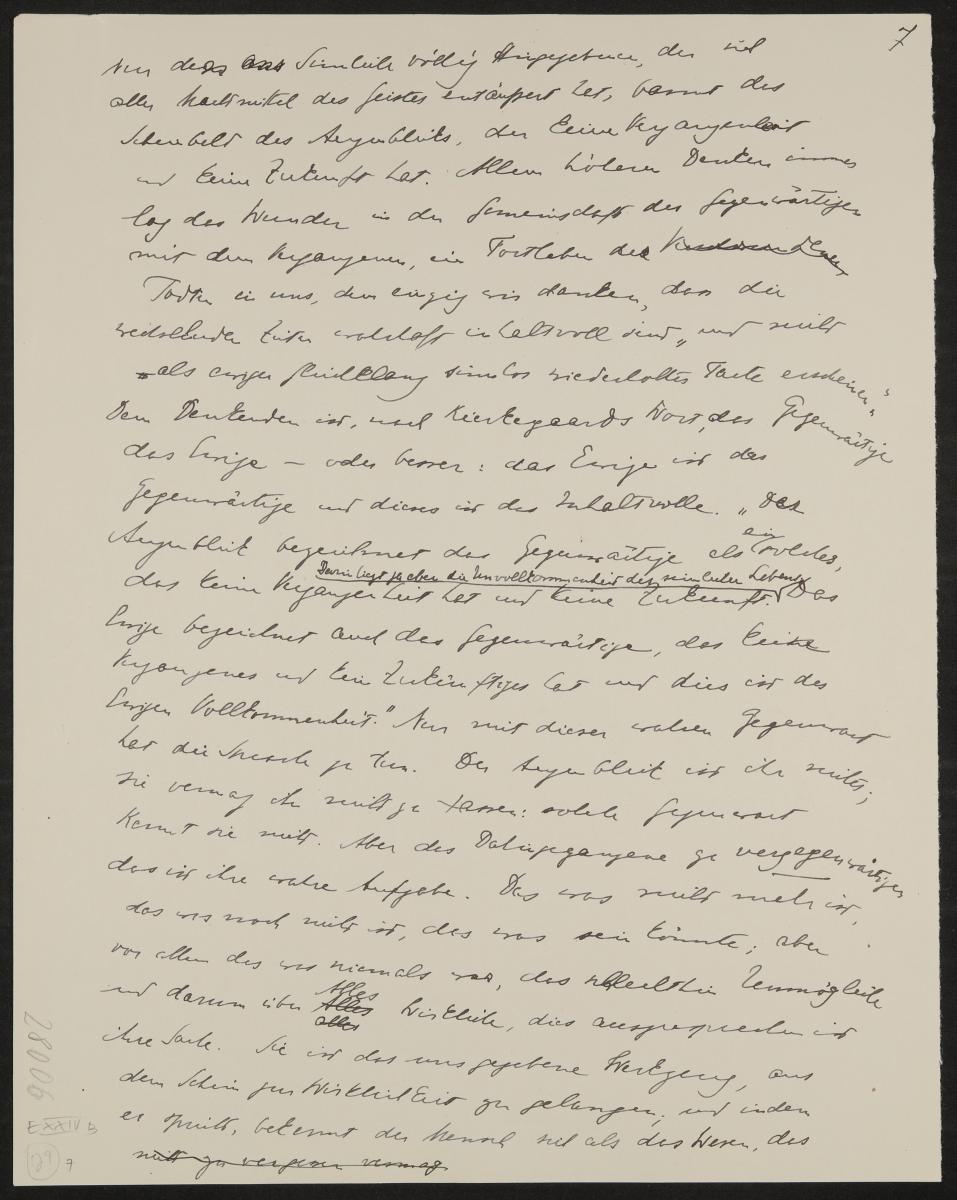 7
Nur der dem Sinnlich völlig Hingegebene, der sich
aller Machtmittel des Geistes entäussert hat, bannt das
Scheinbild des Augenblicks, der keine Vergangenheit
und keine Zukunft hat. Allem höheren Denken immer
lag das Wunder in der Gemeinschaft des Gegenwärtigen
mit dem Vergangenen, ein Fortleben der
Todten in uns, dem einzig wir danken, dass die
wechselnden Zeiten wahrhaft inhaltvoll sind „und nicht
als ewiger Gleichklang sinnlos wiederholter Takte erscheinen“.
Dem Denkenden ist, nach Kierkegaards Wort, das Gegenwärtige
das Ewige – oder besser: das Ewige ist das
Gegenwärtige und dieses ist das Inhaltvolle. „Der
Augenblick bezeichnet das Gegenwärtige als ein solches,
das keine Vergangenheit hat und keine Zukunft. Darin liegt ja eben die Unvollkommenheit des sinnlichen Lebens. Das
Ewige bezeichnet auch das Gegenwärtige, das kein
Vergangenes und kein Zukünftiges hat und dies ist des
Ewigen Vollkommenheit.“ Nur mit dieser wahren Gegenwart
hat die Sprache zu tun. Der Augenblick ist ihr nichts;
sie vermag ihn nicht zu fassen: solche Gegenwart
kennt sie nicht. Aber das Dahingegangene zu vergegenwärtigen
das ist ihre wahre Aufgabe. Das was nicht mehr ist,
das was noch nicht ist, das was sein könnte; aber
vor allem das was niemals war, das schlechthin Unmögliche
und darum über Alles Wirkliche, dies auszusprechen ist
ihre Sache. Sie ist das uns gegebene Werkzeug, aus
dem Schein zur Wirklichkeit zu gelangen, und indem
er spricht, bekennt der Mensch sich als das Wesen, das
nicht zu vergessen vermag
28006
EXXIV B
29 7